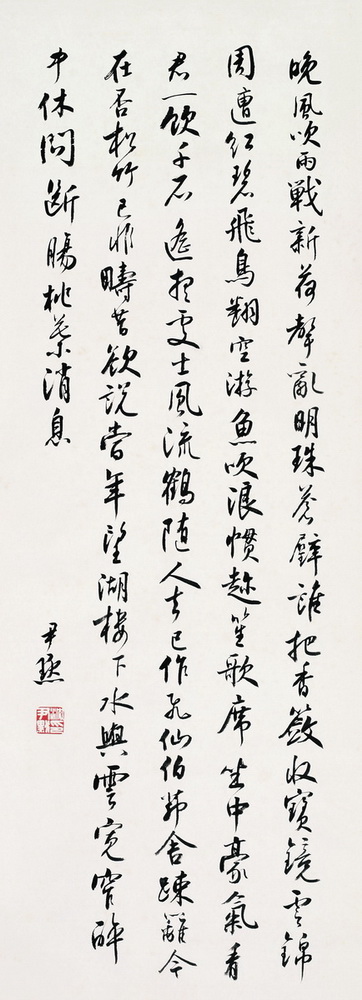 晚風吹雨戰新荷聲亂明珠蒼璧誰把香籢收寶鏡雲錦
周遭紅碧飛鳥翻空游魚吹浪慣趁笙歌席坐中豪氣看
君一飲千石遙想處士風流鶴隨人去已作飛仙伯茅舍疎籬今
在否松竹已非疇昔欲説當年望湖樓下水與雲寬窄醉
中休問斷腸桃葉消息
尹默